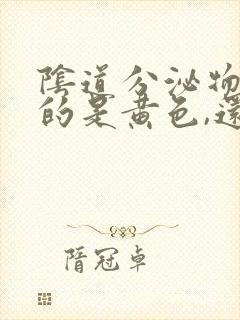 陰道分泌物
的是黃色,還
隋冠卓